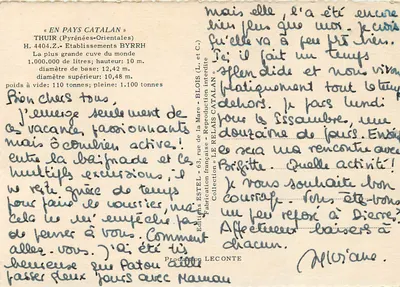 « EN PAYS CATALAN »
THUIR (Pyrénées-Orientales)
H. 4404.Z. - Etablissements BYRRH
La plus grande cuve du monde
1.000.000 de litres; hauteur: 10 m.
diamètre de base: 12,42 m.
diamètre supérieur: 10,48 m.
poids à vide: 110 tonnes; pleine: 1.100 tonnes
Bien chers tous.
J'émerge seulement de
ces vacances passionnantes
mais ô combien actives!
entre la baignade et ces
multiples excursions, il
ne reste guère de temps
pour faire le courrier, mais
cela ne m'empêche pas
de penser à vous. Comment
allez-vous. J'ai été très
heureuse que Patou aille
passer deux jours avec Maman
Editions ESTEL - 63, rue de la Mare - BLOIS (L. et C.)
Fabrication française - Reproduction interdite
Collection « LE RELAIS CATALAN »
LECONTE
mais elle l'a été encore
bien plus que moi. Je crois
qu'elle va un peu bien.
Ici il fait un temps
splendide et nous vivons
pratiquement tout le temps
dehors. Je pars lundi
pour la
douzaine de jours. Ensuite
ce sera ma rencontre avec
Brigitte. Quelle activité!
Je vous souhaite bon
courage. Vous êtes-vous
un peu reposé à Dierre?
Affectueux baisers à
chacun.
Viviane.